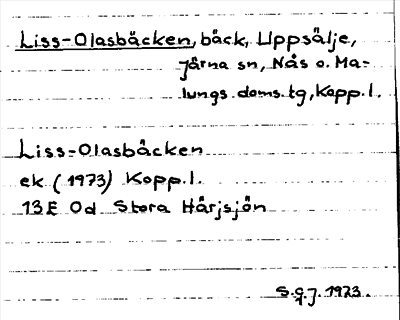 Liss-Olasbäcken, bäck, Uppsälje,
Järna sn, Nås o. Ma-
lungs doms.tg, Kopp.l.
Liss-Olasbäcken
ek (1973) Kopp.l.
13E 0d Stora Härjsjön
S.G.J. 1973.